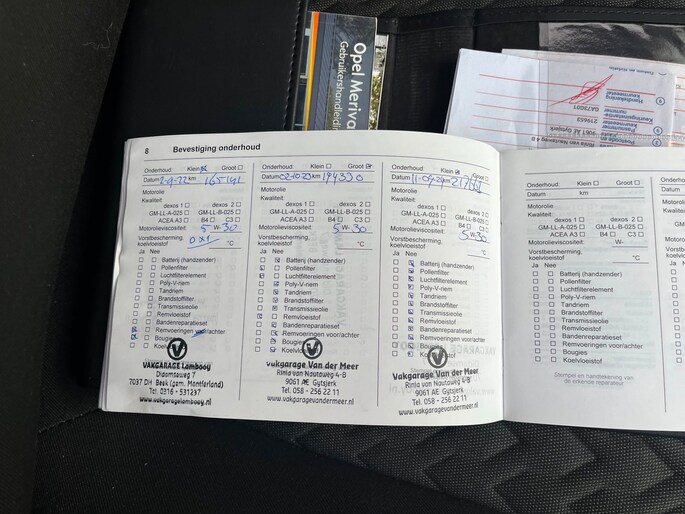 Opel Meriva
Gebruikershandleiding
Handtekening
keurmeester
GA73G01
Keuringsinstantienummer
219653
9061 AE Gytsjerk
8 Bevestiging onderhoud
Onderhoud: Klein Groot
Datum 2-9-22 km 165141
Motorolie
Kwaliteit:
dexos 1 dexos 2
GM-LL-A-025 GM-LL-B-025
ACEA A3 B4 C3
Motorolieviscositeit: 5 W- 30
Vorstbescherming,
koelvloeistof °C
Ja Nee
Batterij (handzender)
Pollenfilter
Luchtfilterelement
Poly-V-riem
Tandriem
Brandstoffilter
Transmissieolie
Remvloeistof
Bandenreparatieset
Remvoeringen voor/achter
Bougies
Koelvloeistof
VAKGARAGE Lambooy
Didamseweg 7
7037 DH Beek (gem. Montferland)
Tel. 0316 - 531237
www.vakgaragelambooy.nl
Onderhoud: Klein Groot
Datum 02-10-23 km 194330
Motorolie
Kwaliteit:
dexos 1 dexos 2
GM-LL-A-025 GM-LL-B-025
ACEA A3 B4 C3
Motorolieviscositeit: 5 W- 30
Vorstbescherming,
koelvloeistof °C
Ja Nee
Batterij (handzender)
Pollenfilter
Luchtfilterelement
Poly-V-riem
Tandriem
Brandstoffilter
Transmissieolie
Remvloeistof
Bandenreparatieset
Remvoeringen voor/achter
Bougies
Koelvloeistof
Vakgarage Van der Meer
Rinia van Nautaweg 4-B
9061 AE Gytsjerk
Tel. 058 - 256 22 11
www.vakgaragevandermeer.nl
Onderhoud: Klein Groot
Datum 11-09-24 km
Motorolie
Kwaliteit:
dexos 1 dexos 2
GM-LL-A-025 GM-LL-B-025
ACEA A3 B4 C3
Motorolieviscositeit: 5 W- 30
Vorstbescherming,
koelvloeistof °C
Ja Nee
Batterij (handzender)
Pollenfilter
Luchtfilterelement
Poly-V-riem
Tandriem
Brandstoffilter
Transmissieolie
Remvloeistof
Bandenreparatieset
Remvoeringen voor/achter
Bougies
Koelvloeistof
Vakgarage Van der Meer
Rinia van Nautaweg 4-B
9061 AE Gytsjerk
Tel. 058 - 256 22 11
www.vakgaragevandermeer.nl
Onderhoud: Klein Groot
Datum km
Motorolie
Kwaliteit:
dexos 1 dexos 2
GM-LL-A-025 GM-LL-B-025
ACEA A3 B4 C3
Motorolieviscositeit: W-
Vorstbescherming,
koelvloeistof °C
Ja Nee
Batterij (handzender)
Pollenfilter
Luchtfilterelement
Poly-V-riem
Tandriem
Brandstoffilter
Transmissieolie
Remvloeistof
Bandenreparatieset
Remvoeringen voor/achter
Bougies
Koelvloeistof
Stempel en handtekening van
de erkende reparateur